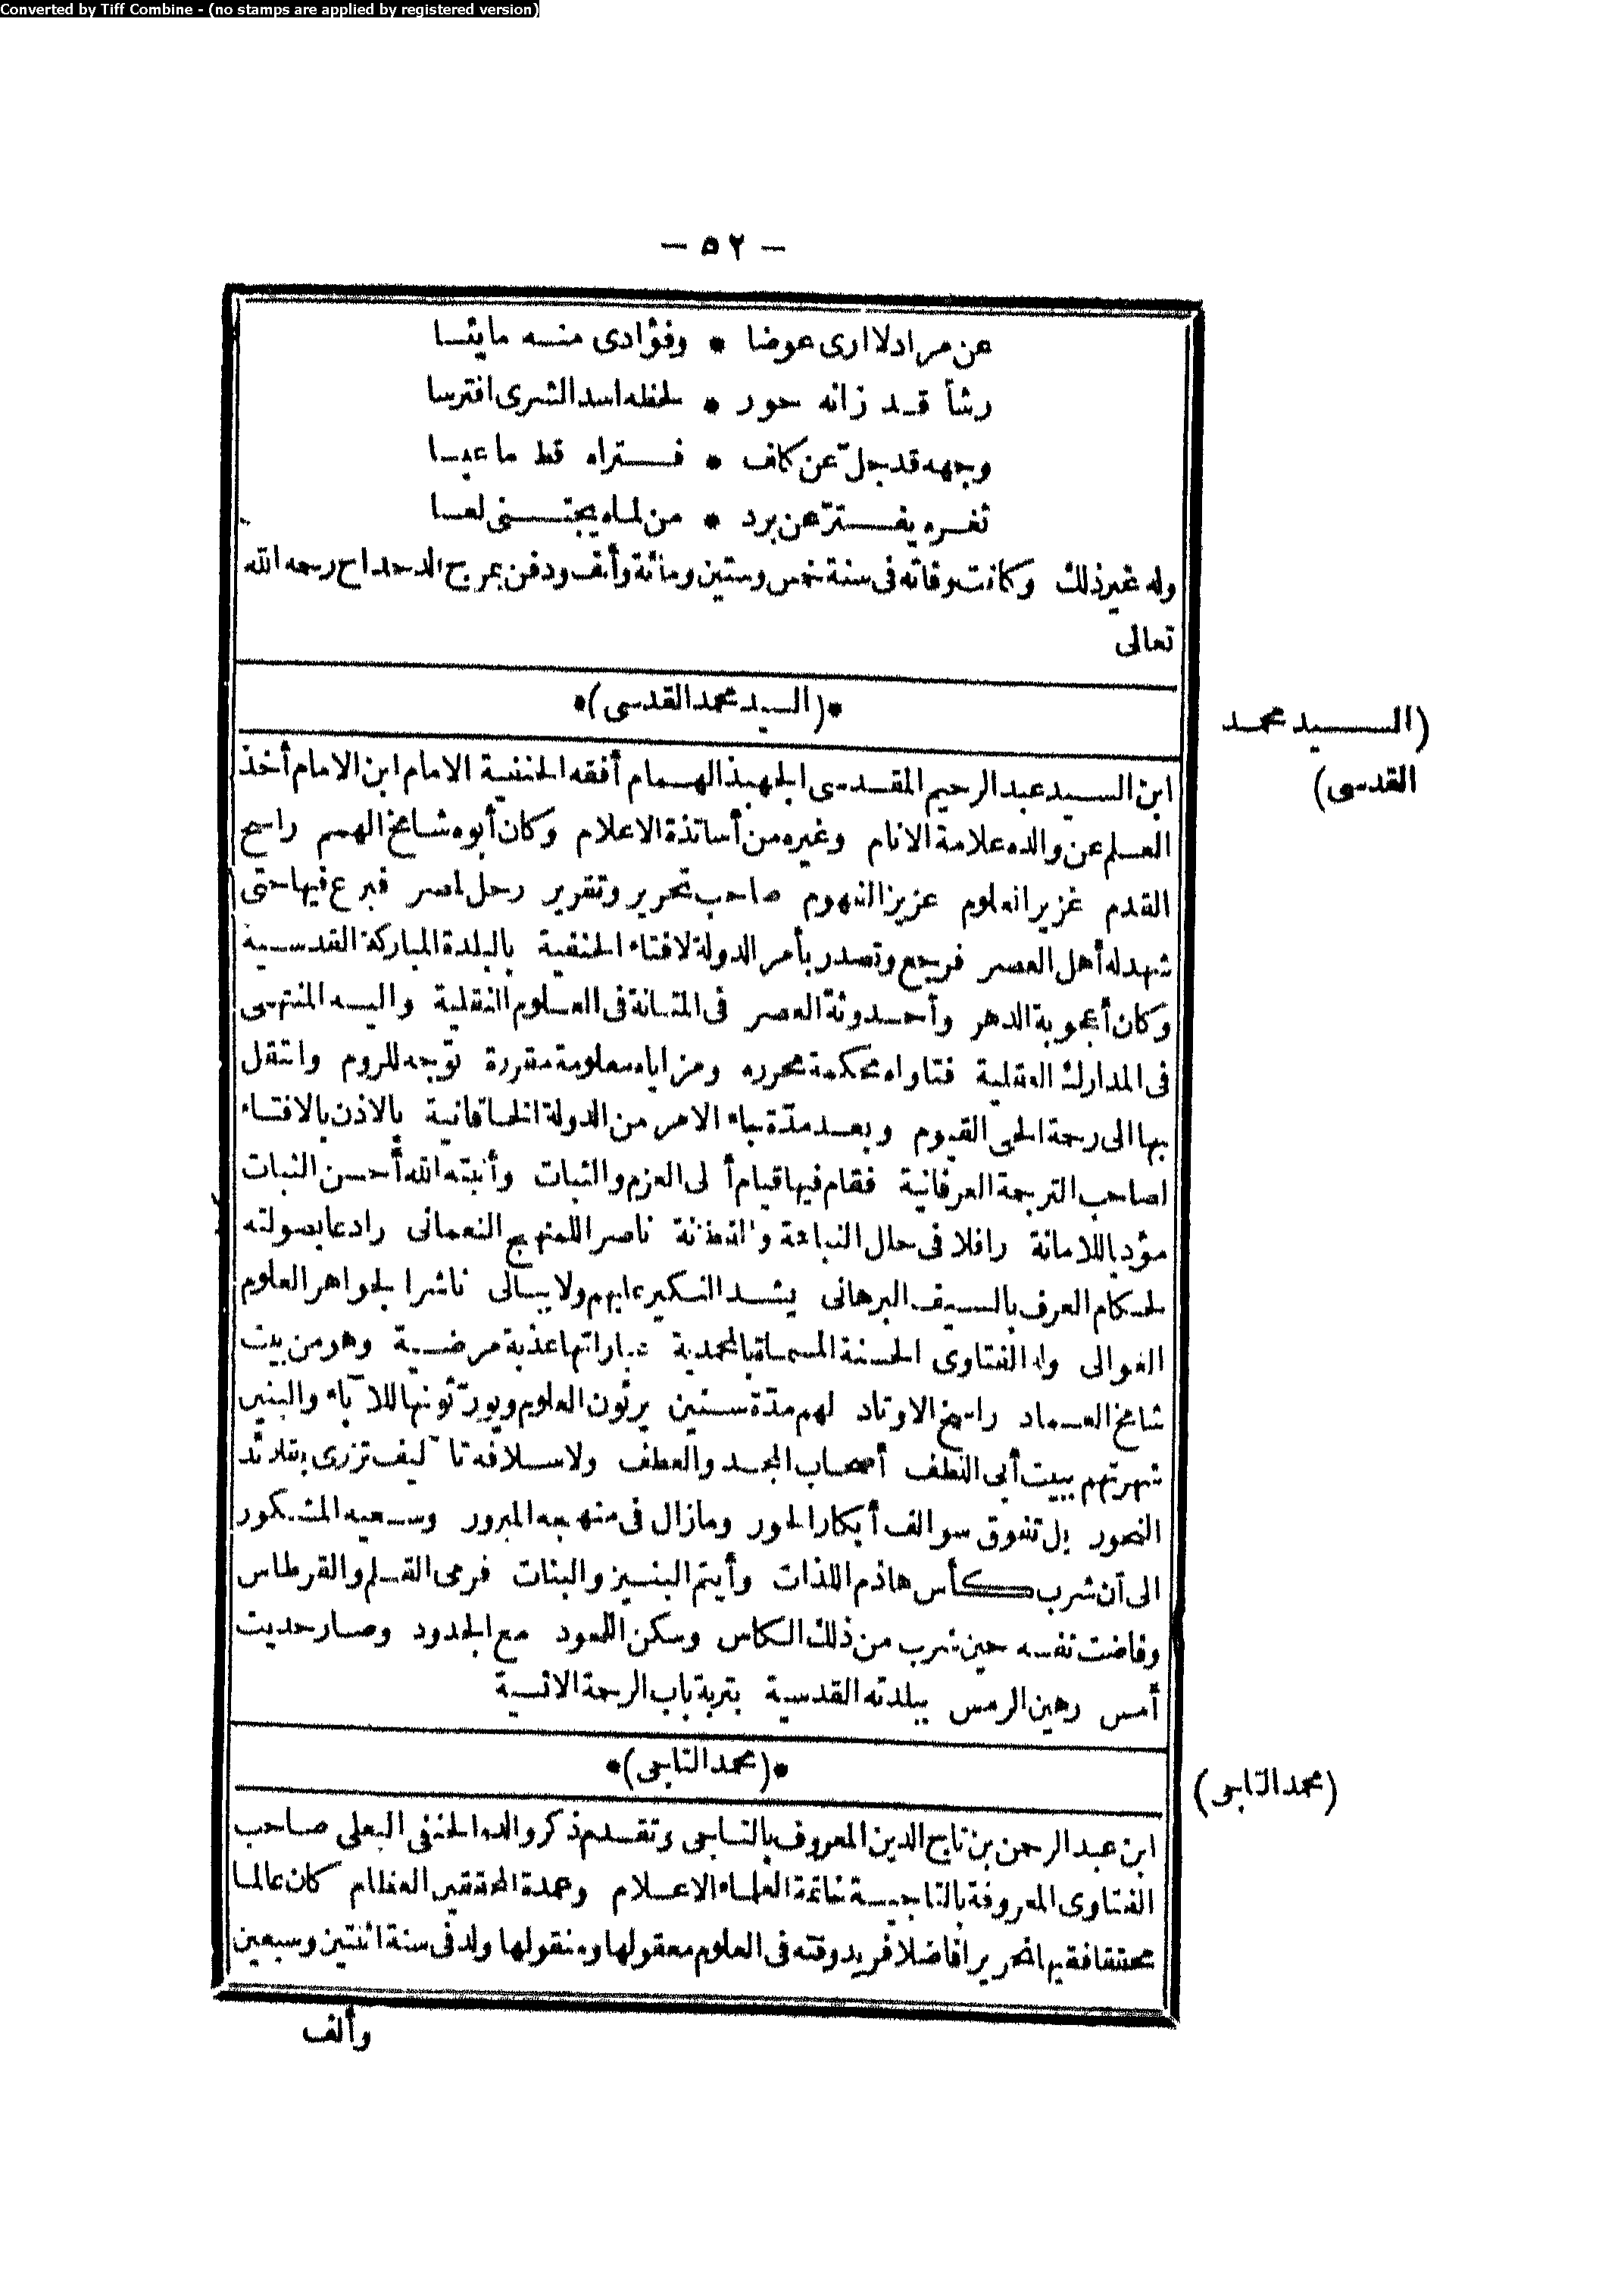 Converted by Tiff Combine - (no stamps are applied by registered version)
— ٥٢ —
عن مراد لا ارى عوضا * وفؤادى منه مايئسا
رشأ قد زانه حور * لحظه اسد الشرى افترسا
وجهه قد جلّ عن كلف * فتراه قط ما عبسا
ثغره يفترّ عن برد * من لماه يجتنى لعسا
وله غير ذلك وكانت وفاته فى سنة خمس وستين ومائة وألف ودفن بمرج الدحداح رحمه الله
تعالى
*(السيد محمد القدسى)*
(السيد محمد
القدسى)
ابن السيد عبد الرحيم المقدسى الجهبذ الهمام أفقه الحنفية الامام ابن الامام أخذ
العلم عن والده علامة الانام وغيره من أساتذة الاعلام وكان أبوه شامخ الهمم راسخ
القدم غزير العلوم عزيز الفهوم صاحب تحرير وتقرير رحل لمصر فبرع فيها حتى
شهد له أهل العصر فرجع وتصدر بأمر الدولة لافتاء الحنفية بالبلدة المباركة القدسية
وكان أعجوبة الدهر وأحدوثة العصر فى المتانة فى العلوم النقلية واليه المنتهى
فى المدارك العقلية فتاواه محكمة محرره ومزاياه معلومة مقررة توّجه للروم وانتقل
بها الى رحمة الحى القيوم وبعد مدّة جاء الامر من الدولة الخاقانية بالاذن بالافتاء
لصاحب الترجمة العرفانية فقام فيها قيام أولى العزم والثبات وأنبته الله أحسن النبات
مؤديا للامانة رافلا فى حلل النباهة والفطنة ناصرا للمنهج النعمانى رادعا بصولته
لحكام العرف بالسيف البرهانى يشدد النكير عليهم ولا يبالى ناشرا لجواهر العلوم
الغوالى وله الفتاوى الحسنة المسماة بالمحمدية عباراتها عذبة مرضية وهو من بيت
شامخ العماد راسخ الاوتاد لهم مدّة سنين يرثون العلوم ويورّثونها للآباء والبنين
شهرتهم ببيت أبى اللطف أصحاب المجد والعطف ولاسلافه تآليف تزرى بقلائد
النحور بل تفوق سوالف أبكار الحور ومازال فى منهجه المبرور وسعيه المشكور
الى آن شرب كأس هاذم اللذات وأيتم البنين والبنات فرمى القلم والقرطاس
وفاضت نفسه حين شرب من ذلك الكاس وسكن اللحود مع الجدود وصار حديث
أمس رهين الرمس ببلدته القدسية بتربة باب الرحمة الانسية
*(محمد التاجى)*
(محمد التاجى)
ابن عبد الرحمن بن تاج الدين المعروف بالتاجى وتقدم ذكر والده الحنفى البعلى صاحب
الفتاوى المعروفة بالتاجية خاتمة العلماء الاعلام وعمدة المحققين العظام كان عالما
محققا فقيها نحريرا فاضلا فريد وقته فى العلوم معقولها ومنقولها ولد فى سنة اثنتين وسبعين
وألف